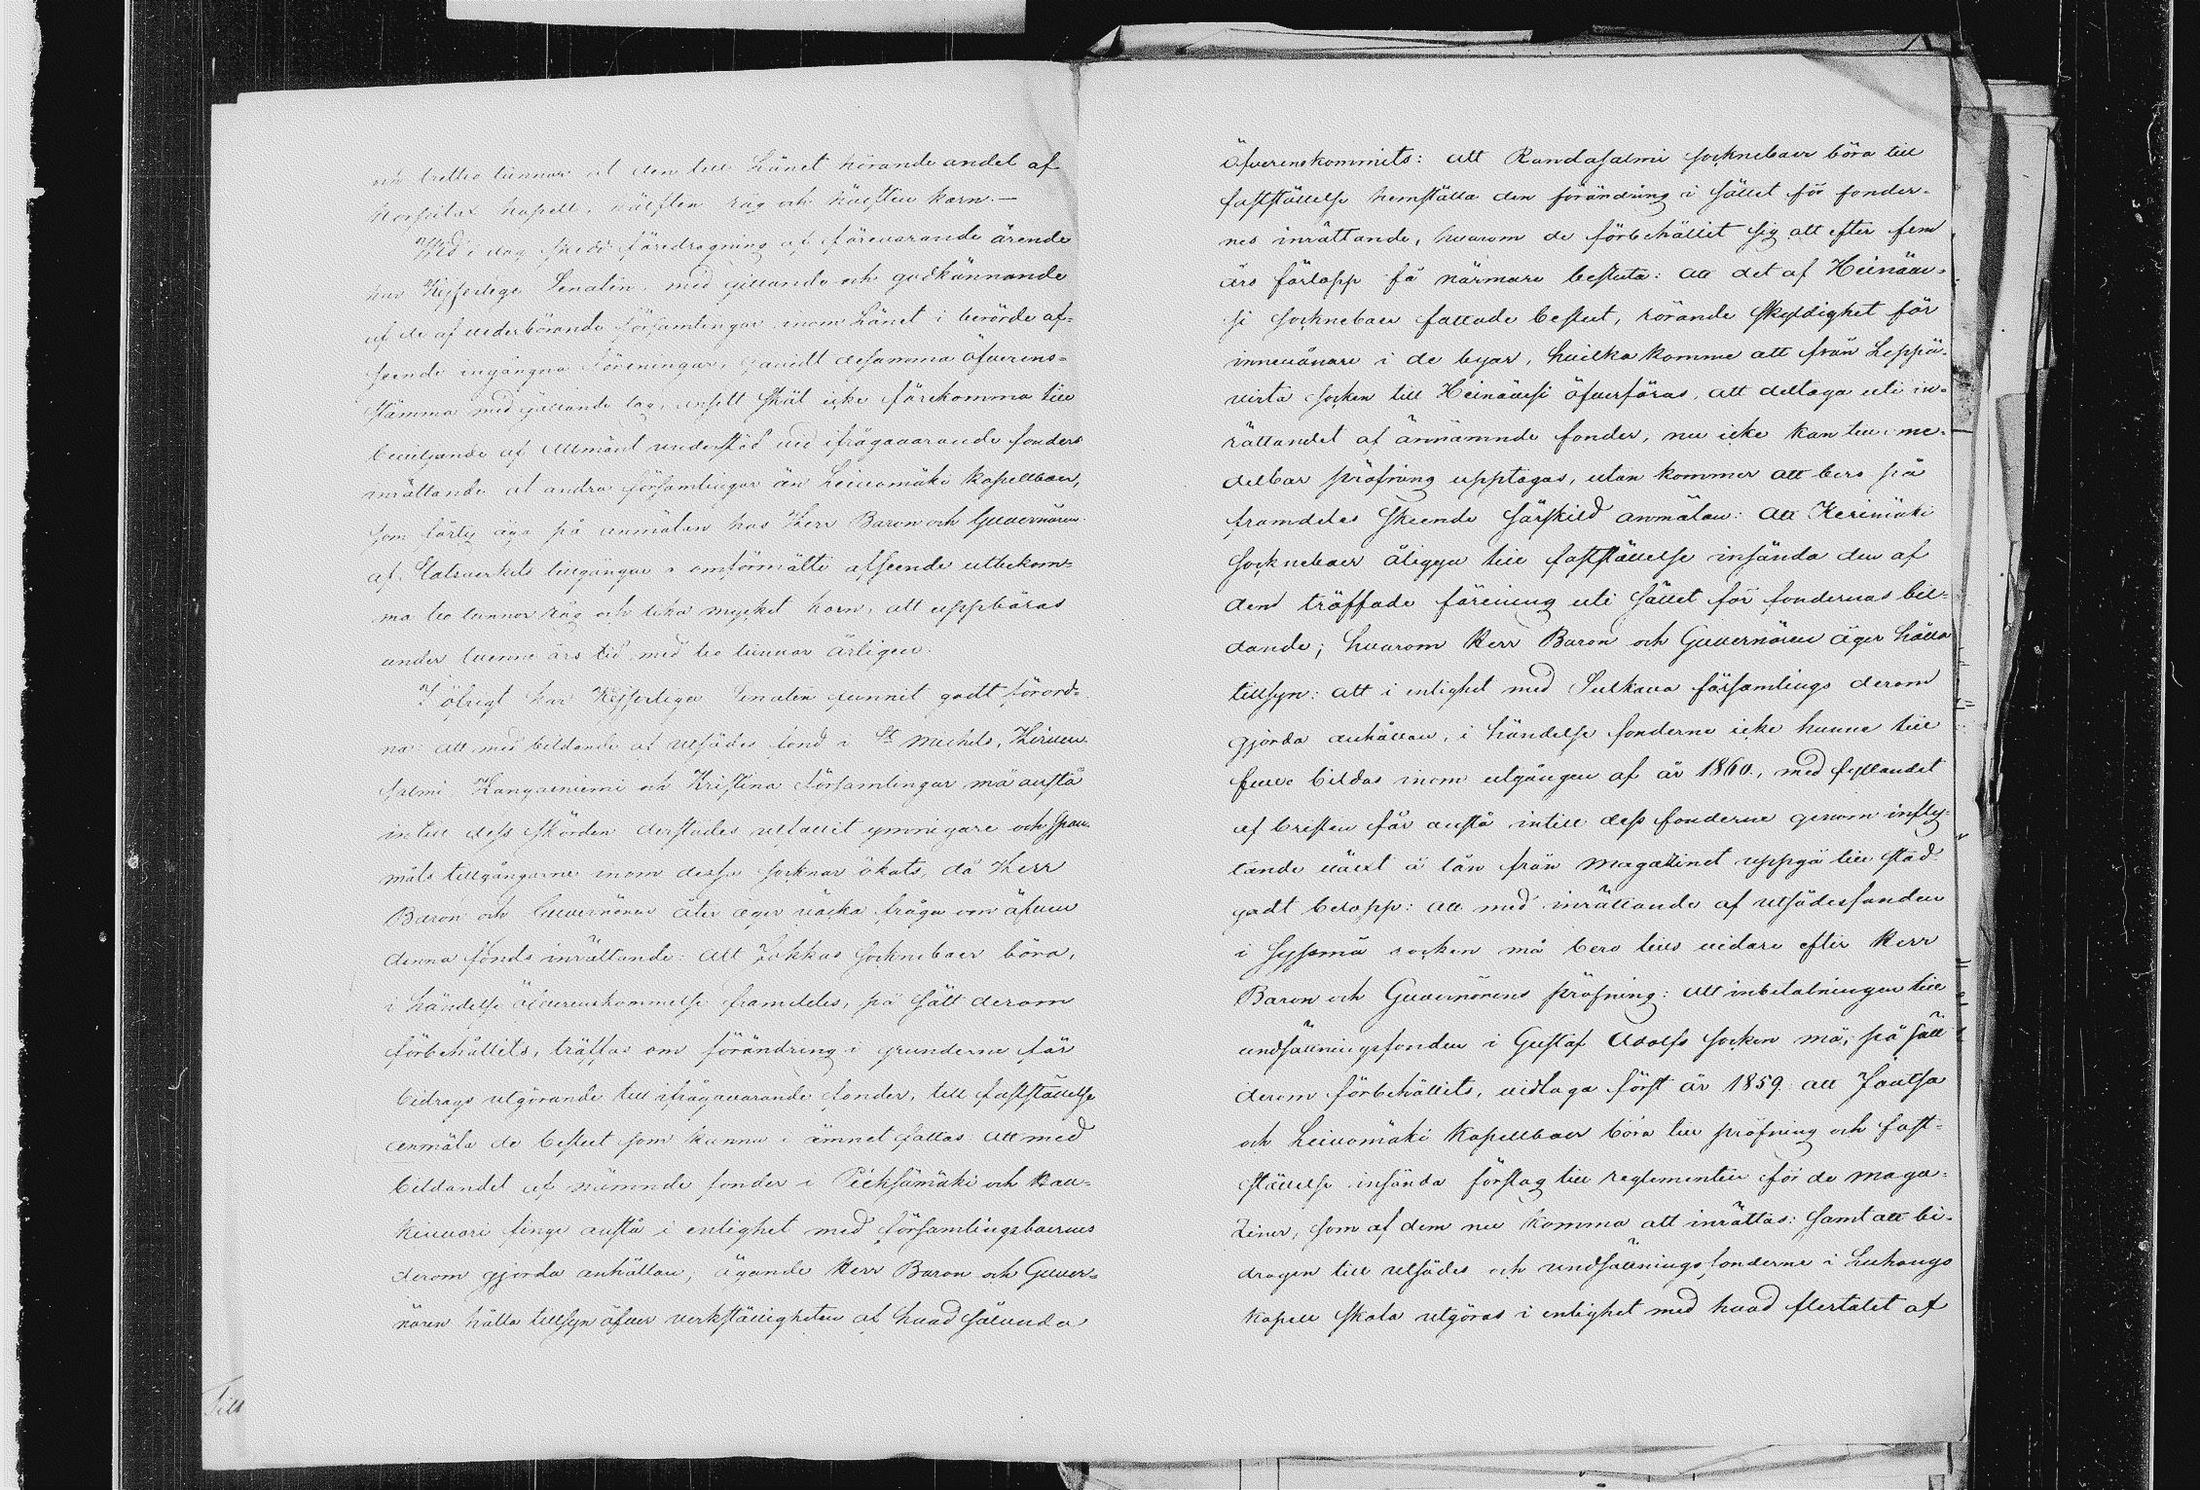 och trettio tunnor at den till Länet hörande andel af
kapell, hälften råg och hälften korn.—
Wid i dag skedd föredragning af förevarande ärende
har Kejserlige Senaten, med gillande och godkännande
af de af vederbörande församlingar inom Länet i berörde af-
seende ingångna föreningar, såvidt desamma öfverens-
stämma med gällande lag, ansett skäl icke förekomma till
beviljande af allmänt understöd vid ifrågavarande fonders
inrättande åt andra församlingar än Leivomäki kapellboer,
som förty äga på anmälan hos Herr Baron och Guvernören
af Statsverkets tillgångar i omförmälte afseende utbekom-
ma tio tunnor råg och lika mycket korn, att uppbäras
under tvenne års tid med tio tunnor årligen.
I öfrigt har Kejserliga Senaten funnit godt förord-
na: att med bildande af utsädes fond i St Michels, Hirven-
salmi Kangasniemi och Kristina församlingar må anstå
intill dess skörden derstädes utfallit ymnigare och span-
måls tillgångarne inom dessa socknar ökats, då Herr
Baron och Guvernören åter äger väcka fråga om äfven
denna fonds inrättande: att Jokkas socknebоer böra,
i händelse öfverenskommelse framdeles, på sätt derom
förbehållits, träffas om förändring i grunderne för
bidrags utgörande till ifrågavarande fonder, till fastställelse
anmäla de beslut som kunna i ämnet fattas: att med
bildandet af nämnde fonder i Pieksämäki och Hau-
kivuori finge anstå i enlighet med församlingsboernes
derom gjorda anhållan, ägande Herr Baron och Guver-
nören hålla tillsyn öfver verkställigheten af hvad sålunda
öfverenskommits: att Randasalmi socknebоer böra till
fastställelse hemställa den förändring i sättet för fonder-
nes inrättande, hvarom de förbehållit sig att efter fem
års förlopp få närmare besluta: att det af Heinäve-
si socknebоer fattade beslut, rörande skyldighet för
innevånare i de byar, hvilka komme att från Leppä-
virta socken till Heinävesi öfverföras, att deltaga uti in-
rättandet af ännämnde fonder, nu icke kan till ome-
delbar pröfning upptagas, utan kommer att bero på
framdeles skeende särskild anmälan: att Kerimäki
socknebоer åligger till fastställelse insända den af
dem träffade förening uti sättet för fondernas bil-
dande; hvarom Herr Baron och Guvernören äger hålla
tillsyn: att i enlighet med Sulkava församlings derom
gjorda anhållan, i händelse fonderne icke hunne till
fullo bildas inom utgången af år 1860., med fyllandet
af bristen får anstå intill dess fonderne genom infly-
tande växt å lån från magazinet uppgå till stad-
gadt belopp: att med inrättande af utsädesfonden
i Sysmä socken må bero tills vidare efter Herr
Baron och Guvernörens pröfning: att inbetalningen till
undsättningsfonden i Gustaf Adolfs socken må, på sätt
derom förbehållits, vidtaga först år 1859. att Joutsa
och Leivomäki kapellboer böra till pröfning och fast-
ställelse insända förslag till reglementen för de maga-
ziner, som af dem nu komma att inrättas: samt att bi-
dragen till utsädes och undsättnings fonderne i Luhango
kapell skola utgöras i enlighet med hvad flertalet af
Till